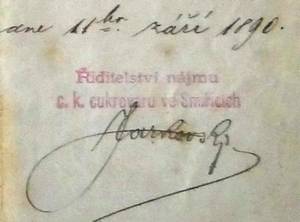 dne 11ho. září 1890.
Řiditelství nájmu
c. k. cukrovaru ve Smiřicích